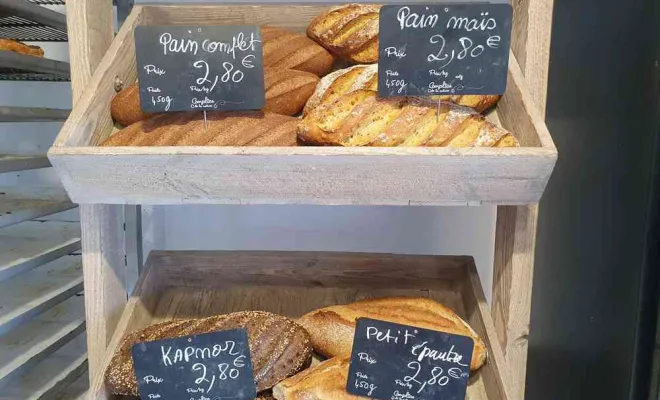 Pain complet
Prix 2,80€
Poids 450g Prix/kg
Pain maïs
Prix 2,80€
Poids 450g Prix/kg
KAPNOR
Prix 2,80€
Poids Prix/kg
Petit épautre
Prix 2,80€
Poids 450g Prix/kg